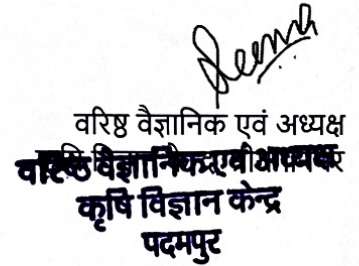 वरिष्ठ वैज्ञानिक एवं अध्यक्ष
वरिष्ठ वैज्ञानिक एवं अध्यक्ष
कृषि विज्ञान केन्द्र
पदमपुर